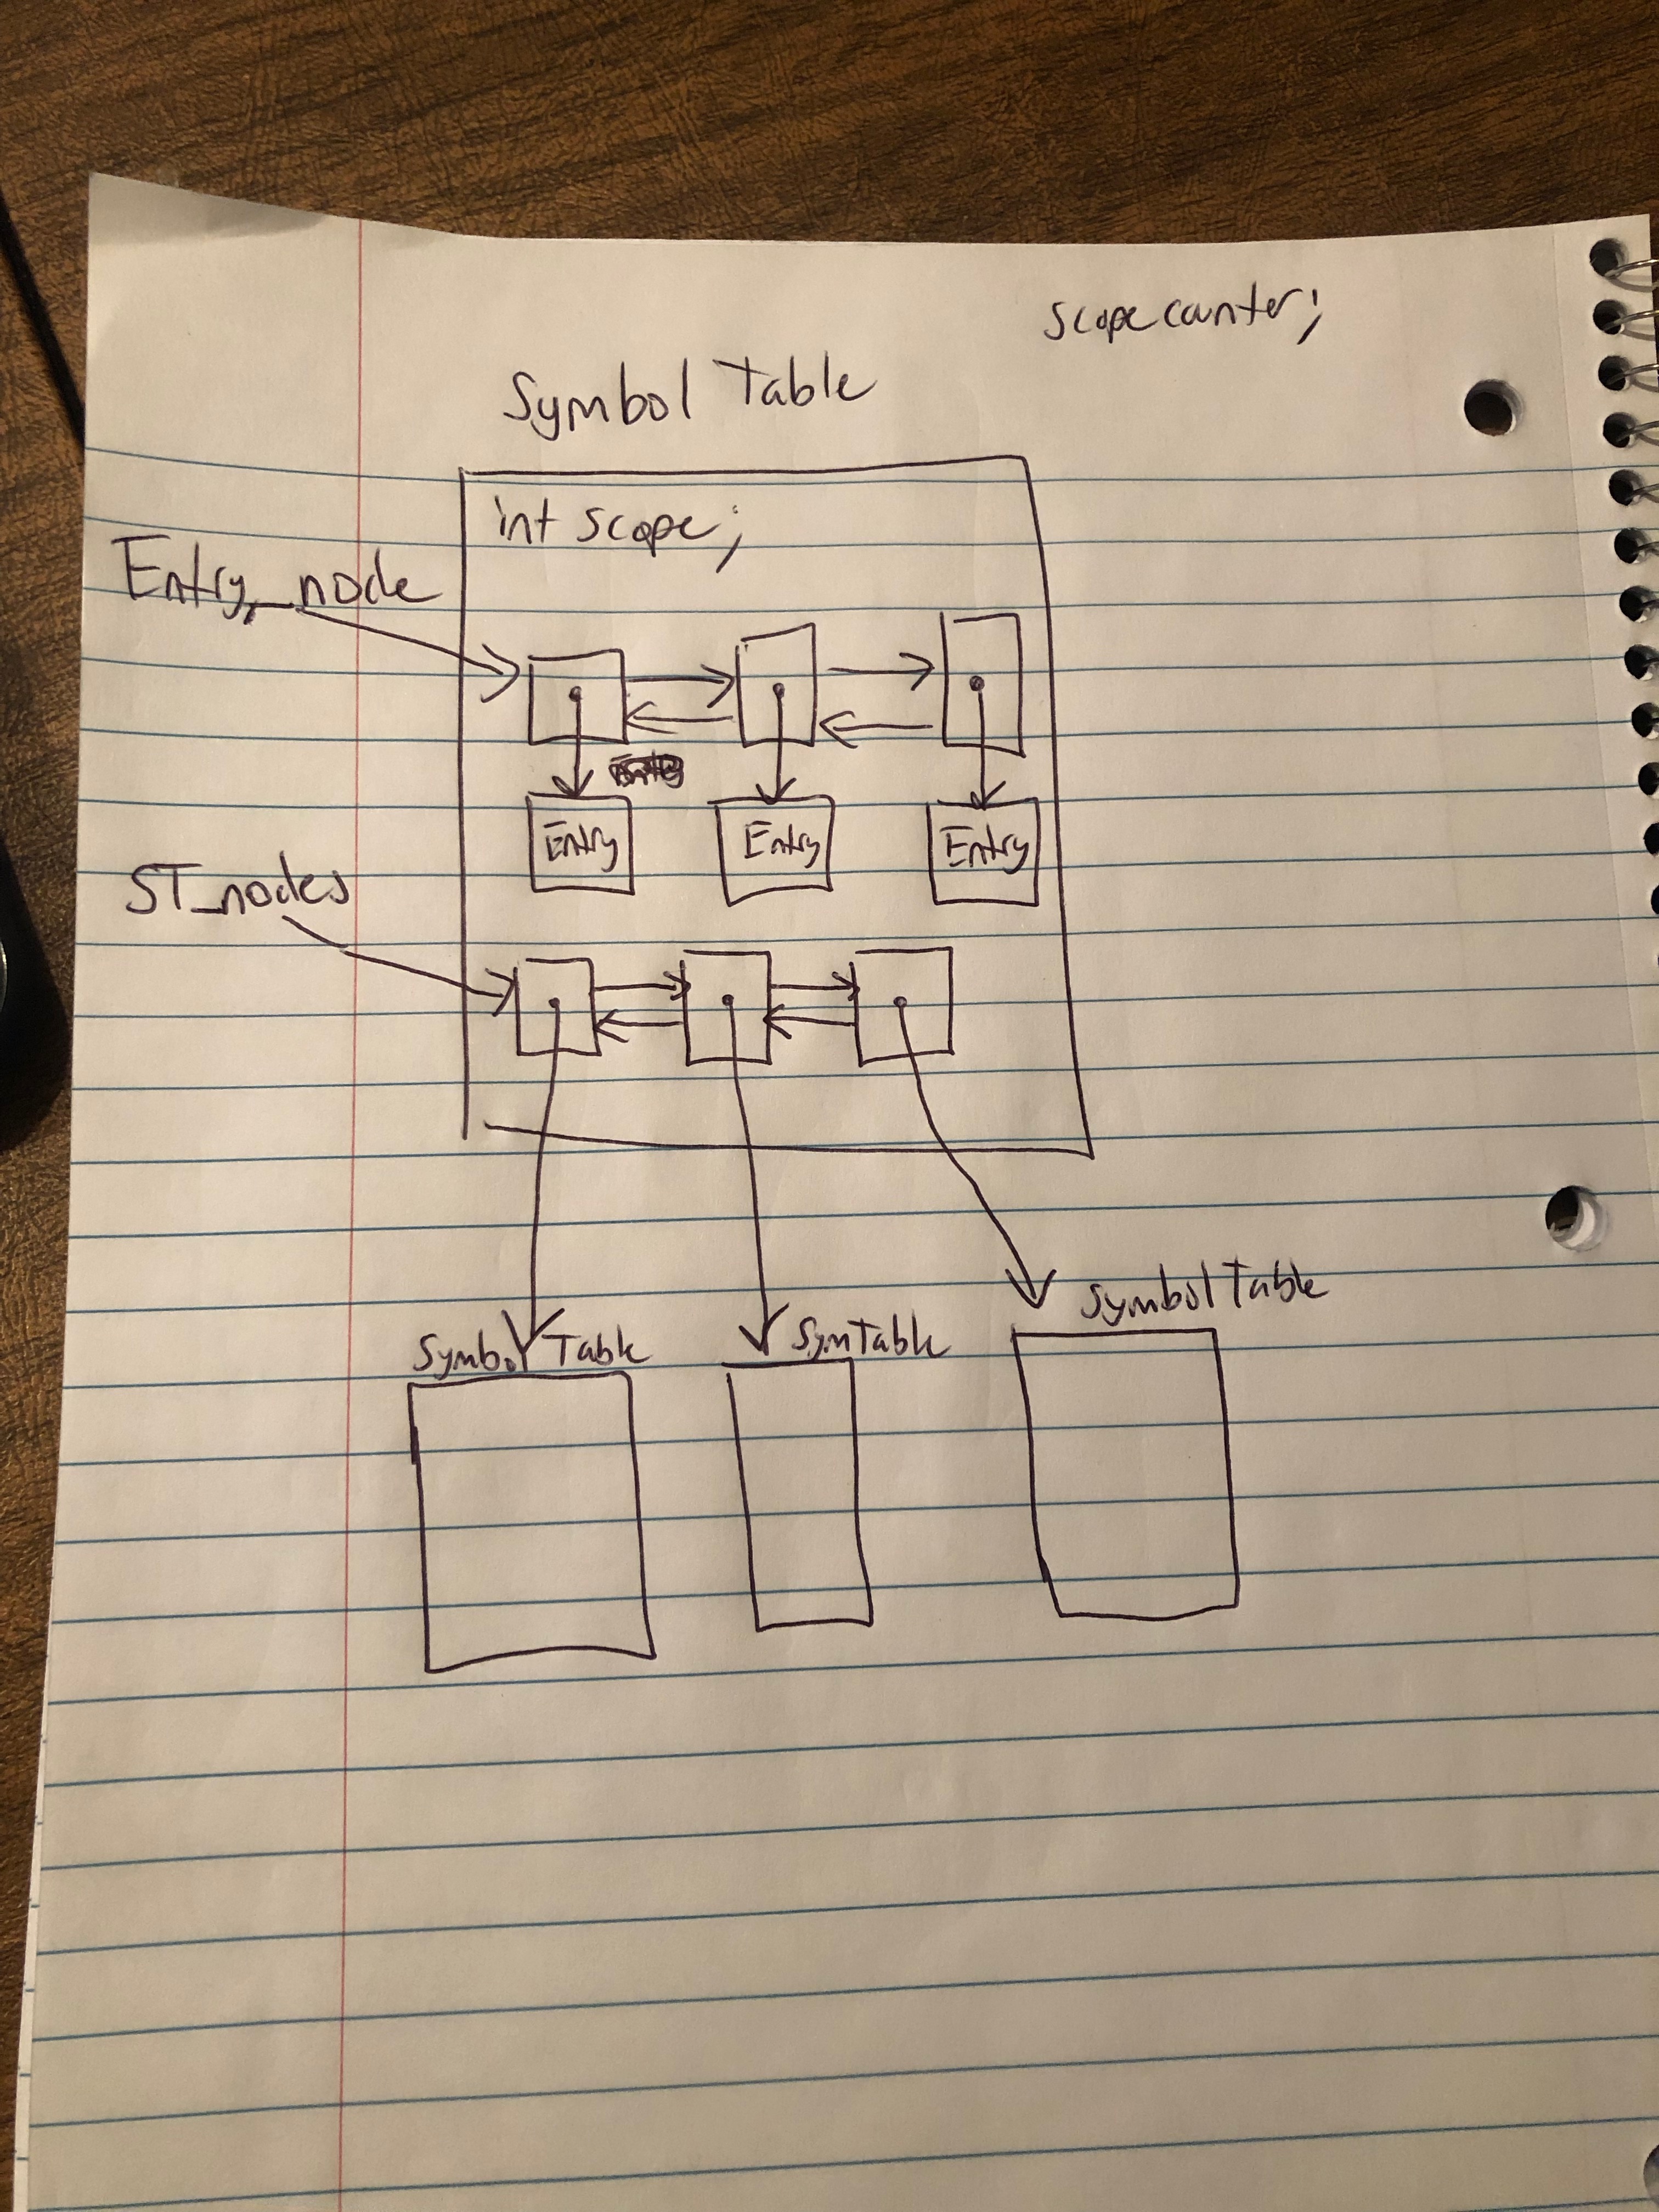 scope counter;
Symbol Table
int scope;
Entry_node
Entry Entry Entry
ST_nodes
Symbol Table
Symbol Table SymTable